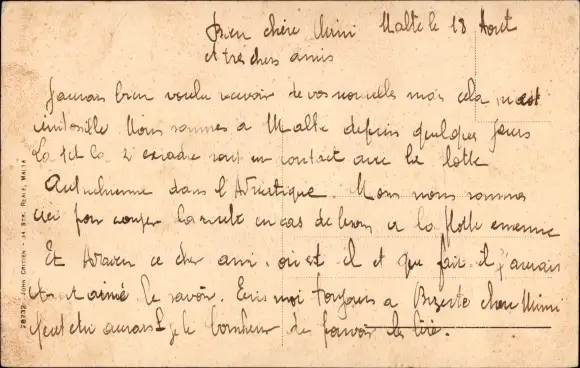 Bien chère Mimi Malte le 18 Aout
et très chers amis
J'aurais bien voulu recevoir de vos nouvelles mais cela m'est
impossible. Nous sommes a Malte depuis quelques jours
la 1 et la 2 escadre sont en contact avec la flotte
Autrichienne dans l'Adriatique. Nous nous sommes
ici pour couper la route en cas de besoin a la flotte ennemie
Et ce cher ami, ou est il et que fait il j'aurais
tant aimé le savoir. Ecris moi toujours a Bizerte chere Mimi
peut etre aurais je le bonheur de pouvoir les lire.
28232 - JOHN CRITIEN - 34 STR. REALE, MALTA